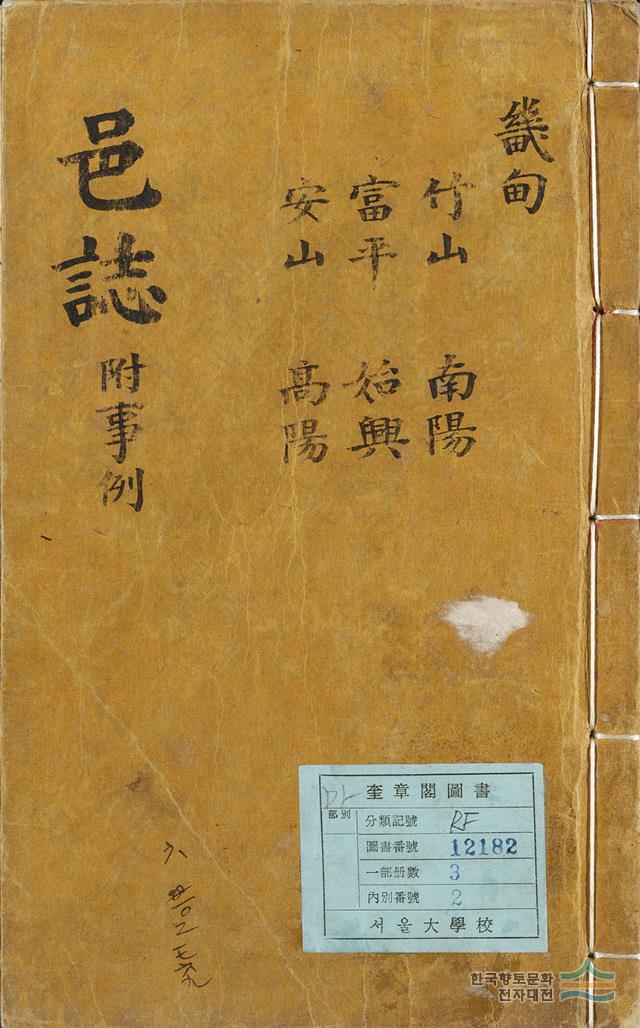 畿甸
竹山 南陽
富平 始興
安山 高陽
邑誌 附事例
奎章閣圖書
部別
分類記號
圖書番號 12182
一部册數 3
內別番號 2
서울大學校
한국향토문화
전자대전